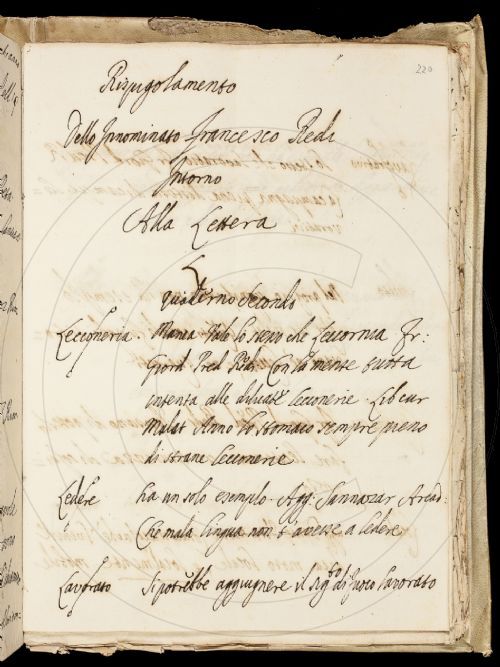 220
Rispigolamento
Dello Innominato Francesco Redi
Intorno
Alla Lettera
L
quaderno secondo
Leccornia. Manca Vale lo stesso che Leccornia Fr:
Giord. Pred. Red. Con la mente tutta
intenta alle dilicate lecconerie. Lib cur
Malat Anno lo stomaco sempre pieno
di strane lecconerie
Ledere ha un solo esempio. Agg: Sannazar Arcad.
Che mala lingua non t'avesse a ledere
Lavorato Si potrebbe aggiugnere il sigto di fuoco lavorato